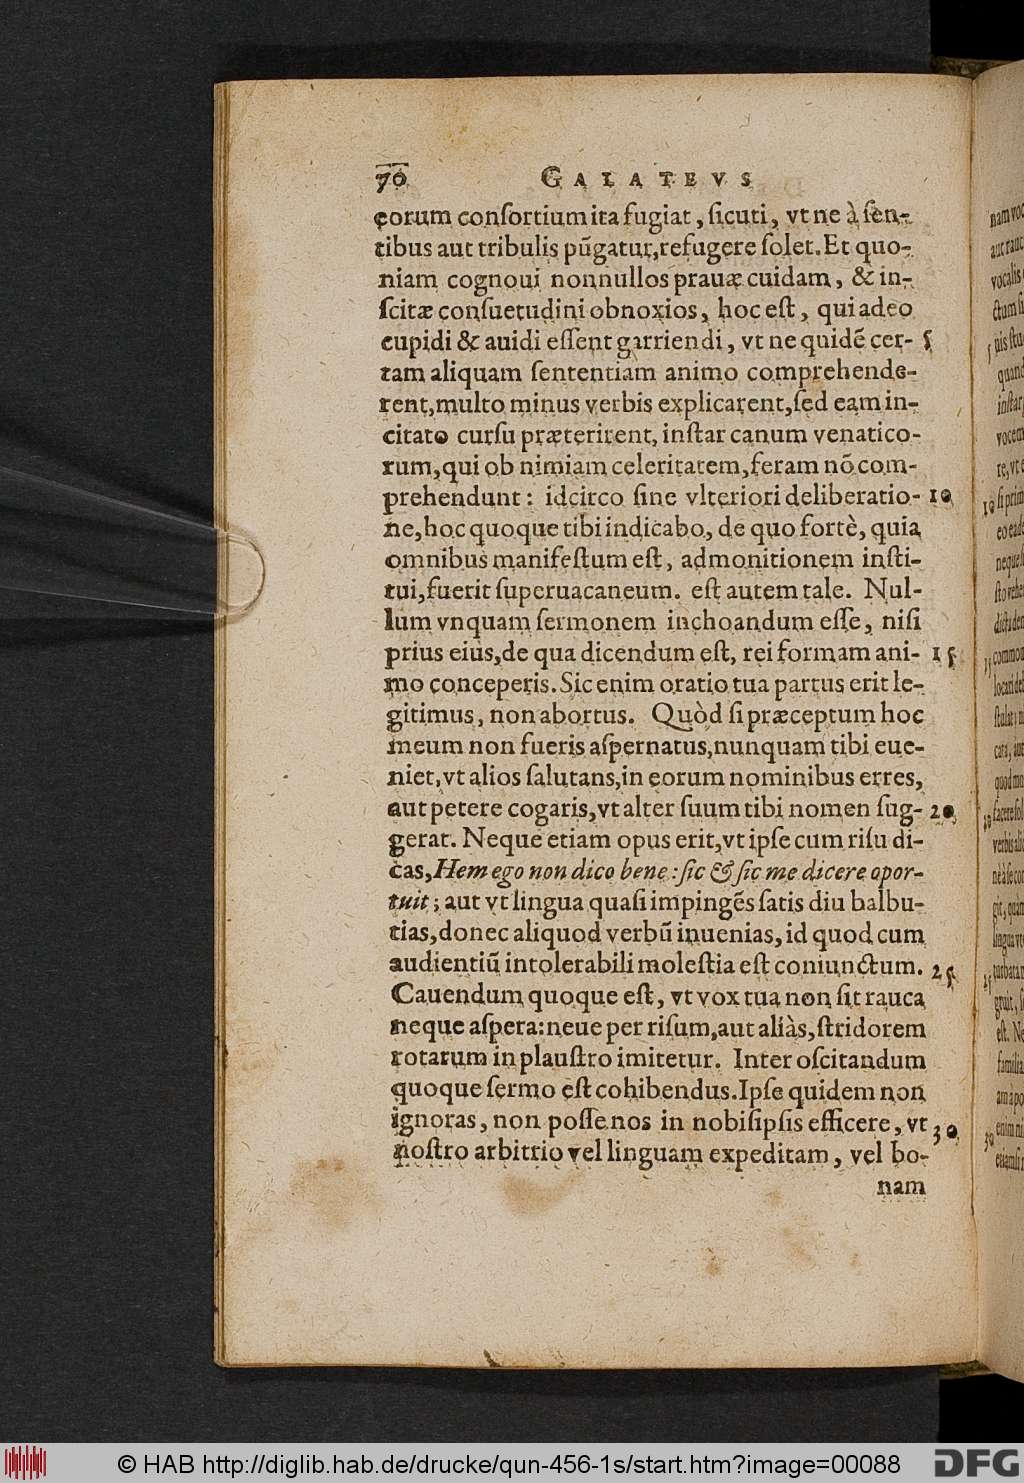 70 GALATEVS
eorum conſortium ita fugiat, ſicuti, vt ne à ſen-
tibus aut tribulis pũgatur, refugere ſolet. Et quo-
niam cognoui nonnullos prauæ cuidam, & in-
ſcitæ conſuetudini obnoxios, hoc eſt, qui adeo
cupidi & auidi eſſent garriendi, vt ne quidẽ cer- 5
tam aliquam ſententiam animo comprehende-
rent, multo minus verbis explicarent, ſed eam in-
citato curſu præterirent, inſtar canum venatico-
rum, qui ob nimiam celeritatem, feram nõ com-
prehendunt: idcirco ſine vlteriori deliberatio- 10
ne, hoc quoque tibi indicabo, de quo fortè, quia
omnibus manifeſtum eſt, admonitionem inſti-
tui, fuerit ſuperuacaneum. eſt autem tale. Nul-
lum vnquam ſermonem inchoandum eſſe, niſi
prius eius, de qua dicendum eſt, rei formam ani- 15
mo conceperis. Sic enim oratio tua partus erit le-
gitimus, non abortus. Quòd ſi præceptum hoc
meum non fueris aſpernatus, nunquam tibi eue-
niet, vt alios ſalutans, in eorum nominibus erres,
aut petere cogaris, vt alter ſuum tibi nomen ſug- 20
gerat. Neque etiam opus erit, vt ipſe cum riſu di-
cas, Hem ego non dico bene: ſic & ſic me dicere opor-
tuit; aut vt lingua quaſi impingẽs ſatis diu balbu-
tias, donec aliquod verbũ inuenias, id quod cum
audientiũ intolerabili moleſtia eſt coniunctum. 25
Cauendum quoque eſt, vt vox tua non ſit rauca
neque aſpera: neue per riſum, aut aliàs, ſtridorem
rotarum in plauſtro imitetur. Inter oſcitandum
quoque ſermo eſt cohibendus. Ipſe quidem non
ignoras, non poſſe nos in nobiſipſis efficere, vt 30
noſtro arbitrio vel linguam expeditam, vel bo-
nam
© HAB http://diglib.hab.de/drucke/qun-456-1s/start.htm?image=00088
DFG